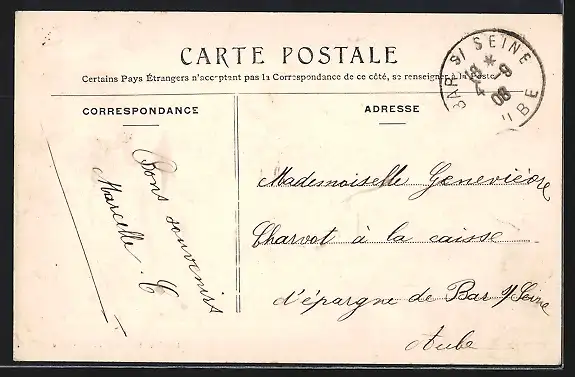 CARTE POSTALE
Certains Pays Étrangers n'acceptent pas la Correspondance de ce côté, se renseigner à la Poste
BAR S/ SEINE
18 *
4 - 9
08
UBE
CORRESPONDANCE
ADRESSE
Bons souvenirs
Marcelle. C
Mademoiselle Geneviève
Charvot à la caisse
d'épargne de Bar s/Seine
Aube